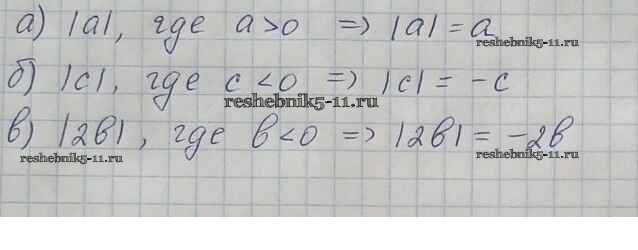 а) |a|, где a>0 => |a| = a
reshebnik5-11.ru
б) |c|, где c<0 => |c| = -c
reshebnik5-11.ru
в) |2b|, где b<0 => |2b| = -2b
reshebnik5-11.ru
reshebnik5-11.ru